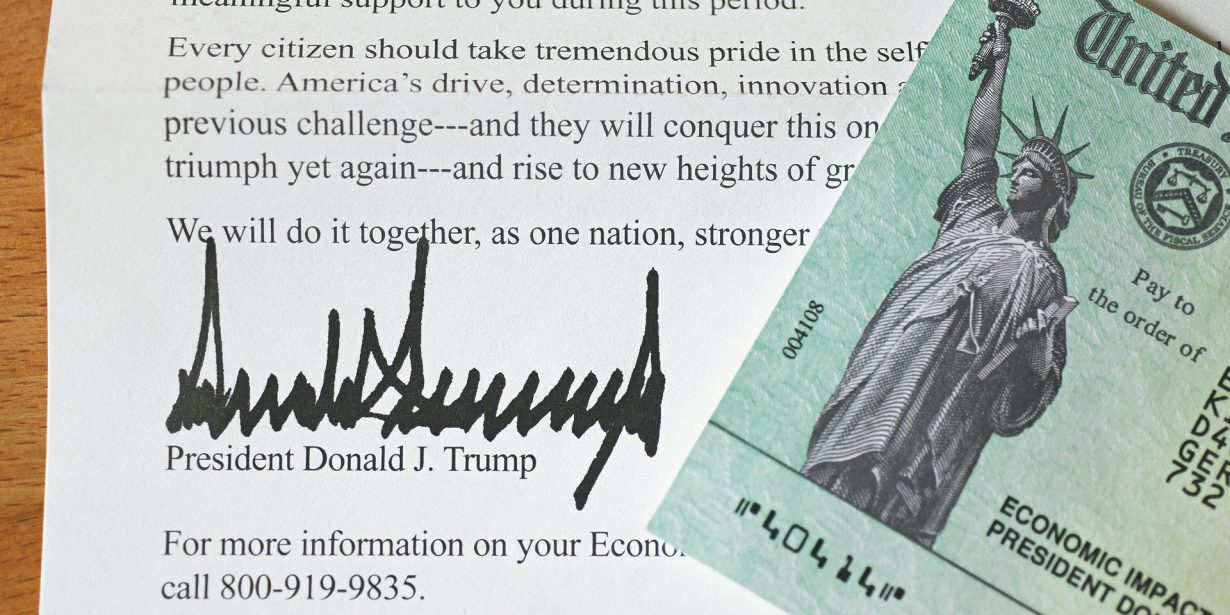 meaningful support to you during this period.
Every citizen should take tremendous pride in the self
people. America's drive, determination, innovation
previous challenge---and they will conquer this
triumph yet again---and rise to new heights of
We will do it together, as one nation, stronger
President Donald J. Trump
For more information on your
call 800-919-9835.
United
BUREAU OF THE FISCAL SERVICE
TREASURY
Pay to
the order of
004108
732
ECONOMIC IMPACT
PRESIDENT
⑈40414⑈